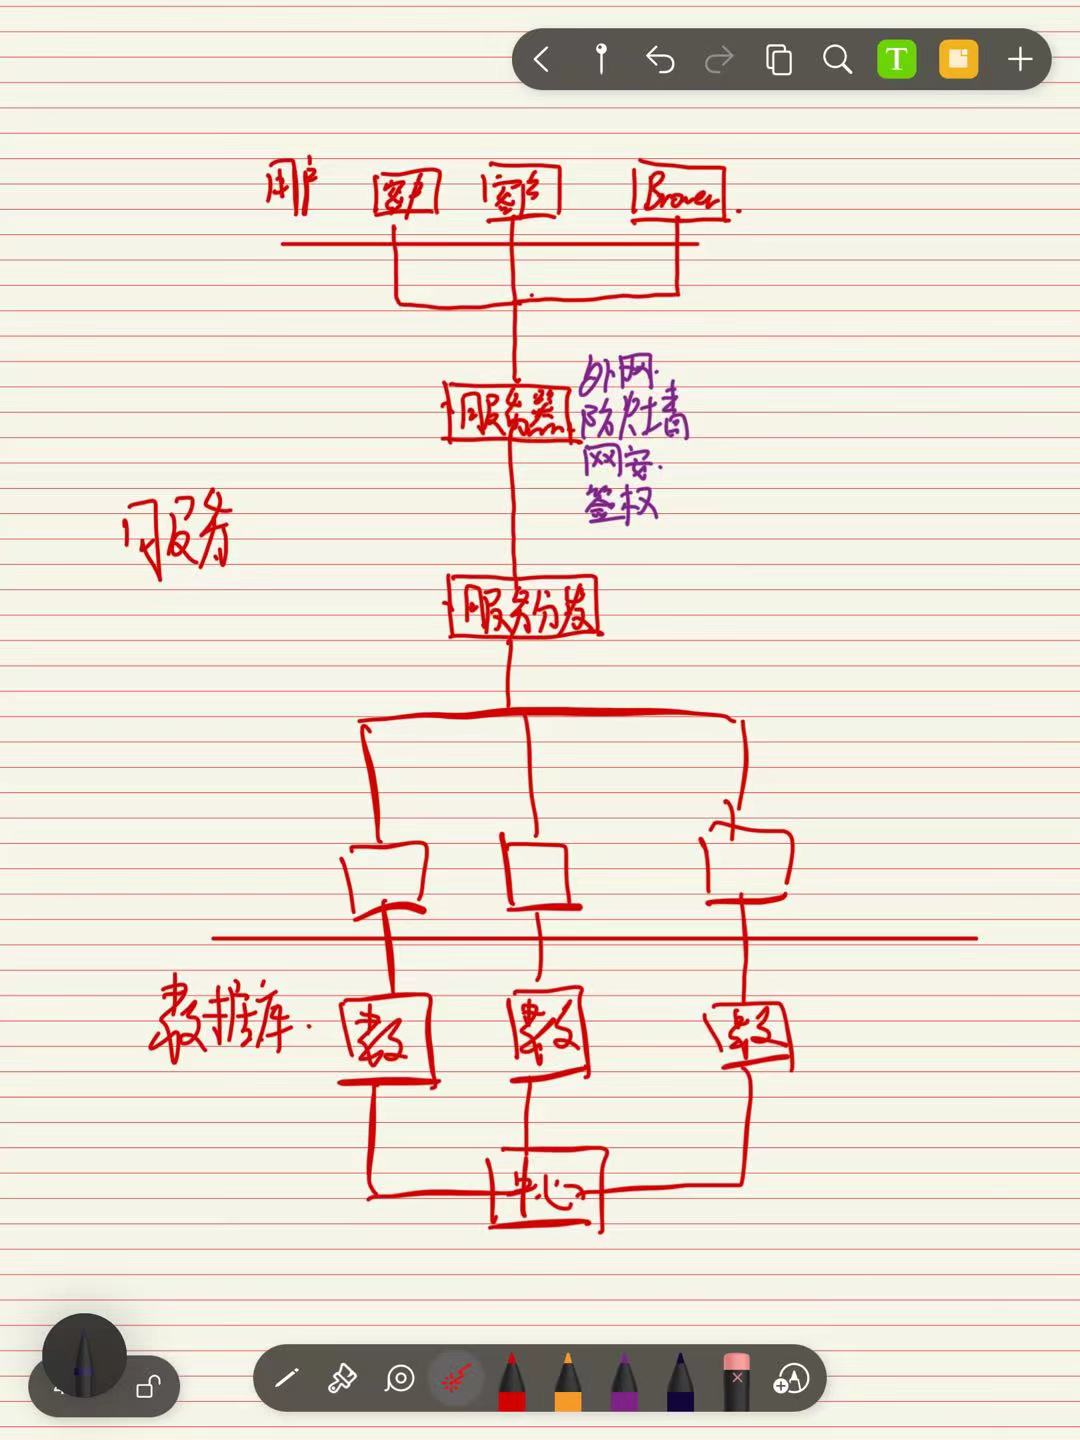 T
用户 客户 客户 Brower.
服务器
外网.
防火墙
网安.
签权
服务
服务分发
数据库.
数 数 数
中心